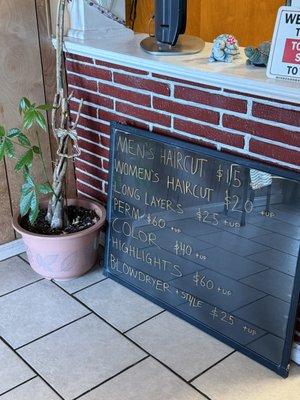 MEN'S HAIRCUT $15
WOMEN'S HAIRCUT $20 +UP
LONG LAYER'S $25 +UP
PERM $60 +UP
COLOR $40 +UP
HIGHLIGHTS $60 +UP
BLOWDRYER +STYLE $25 +UP
WE
TO